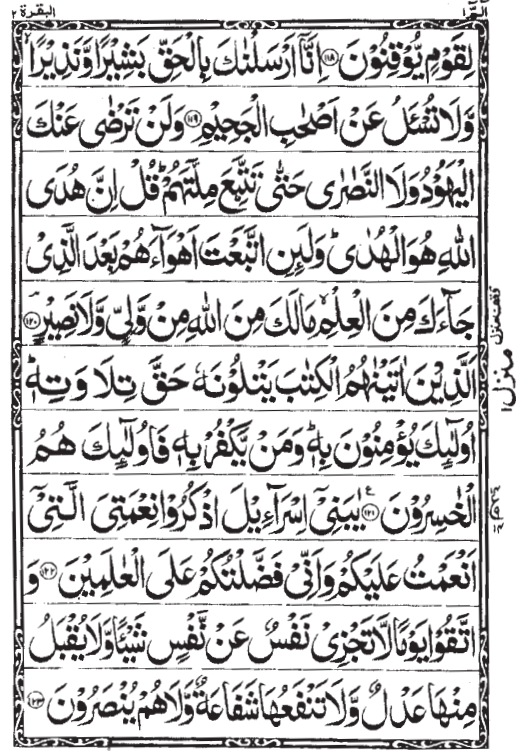 الٓمّٓ ١ البقرة ٢
لِقَوْمٍ يُّوْقِنُوْنَ ﴿۱۱۸﴾ اِنَّاۤ اَرْسَلْنٰكَ بِالْحَقِّ بَشِيْرًا وَّنَذِيْرًا
وَّلَا تُسْـَٔلُ عَنْ اَصْحٰبِ الْجَحِيْمِ ﴿۱۱۹﴾ وَلَنْ تَرْضٰى عَنْكَ
الْيَهُوْدُ وَلَا النَّصٰرٰى حَتّٰى تَتَّبِعَ مِلَّتَهُمْ ؕ قُلْ اِنَّ هُدَى
اللّٰهِ هُوَ الْهُدٰى ؕ وَلَئِنِ اتَّبَعْتَ اَهْوَآءَهُمْ بَعْدَ الَّذِىْ
جَآءَكَ مِنَ الْعِلْمِ ۙ مَالَكَ مِنَ اللّٰهِ مِنْ وَّلِىٍّ وَّلَا نَصِيْرٍ ﴿۱۲۰﴾
اَلَّذِيْنَ اٰتَيْنٰهُمُ الْكِتٰبَ يَتْلُوْنَهٗ حَقَّ تِلَاوَتِهٖ ؕ
اُولٰٓئِكَ يُؤْمِنُوْنَ بِهٖ ؕ وَمَنْ يَّكْفُرْ بِهٖ فَاُولٰٓئِكَ هُمُ
الْخٰسِرُوْنَ ﴿۱۲۱﴾ ع يٰبَنِىْۤ اِسْرَآءِيْلَ اذْكُرُوْا نِعْمَتِىَ الَّتِىْۤ
اَنْعَمْتُ عَلَيْكُمْ وَاَنِّىْ فَضَّلْتُكُمْ عَلَى الْعٰلَمِيْنَ ﴿۱۲۲﴾ وَ
اتَّقُوْا يَوْمًا لَّا تَجْزِىْ نَفْسٌ عَنْ نَّفْسٍ شَيْـًٔا وَّلَا يُقْبَلُ
مِنْهَا عَدْلٌ وَّلَا تَنْفَعُهَا شَفَاعَةٌ وَّلَا هُمْ يُنْصَرُوْنَ ﴿۱۲۳﴾
وقف منزل
منزل ١